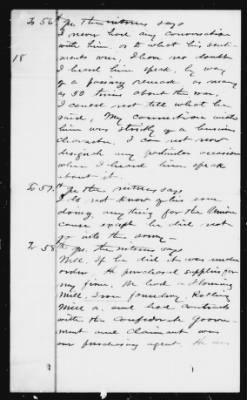 To 56th ques the witness says
I never had any conversation
with him or to what his sent-
iments were, I have no doubt
18
I heard him speak, by way
of a passing remark as many
as 50 times about the war,
I cannot not tell what he
said, My connection with
him was strictly of a business
character. I can not now
designate any particular occasion
when I heard him speak
about it.
To 57th ques the witness says
I do not know of his ever
doing anything for the Union
cause except he did not
go into the army —
To 58th ques the witness says
Well, if he did it was under
orders. He purchased supplies for
my firm, We had a Flouring
Mill, Iron foundry, Rolling
Mill &c. and had contracts
with the Confederate Govern-
ment and Claimant was
our purchasing agent. He was